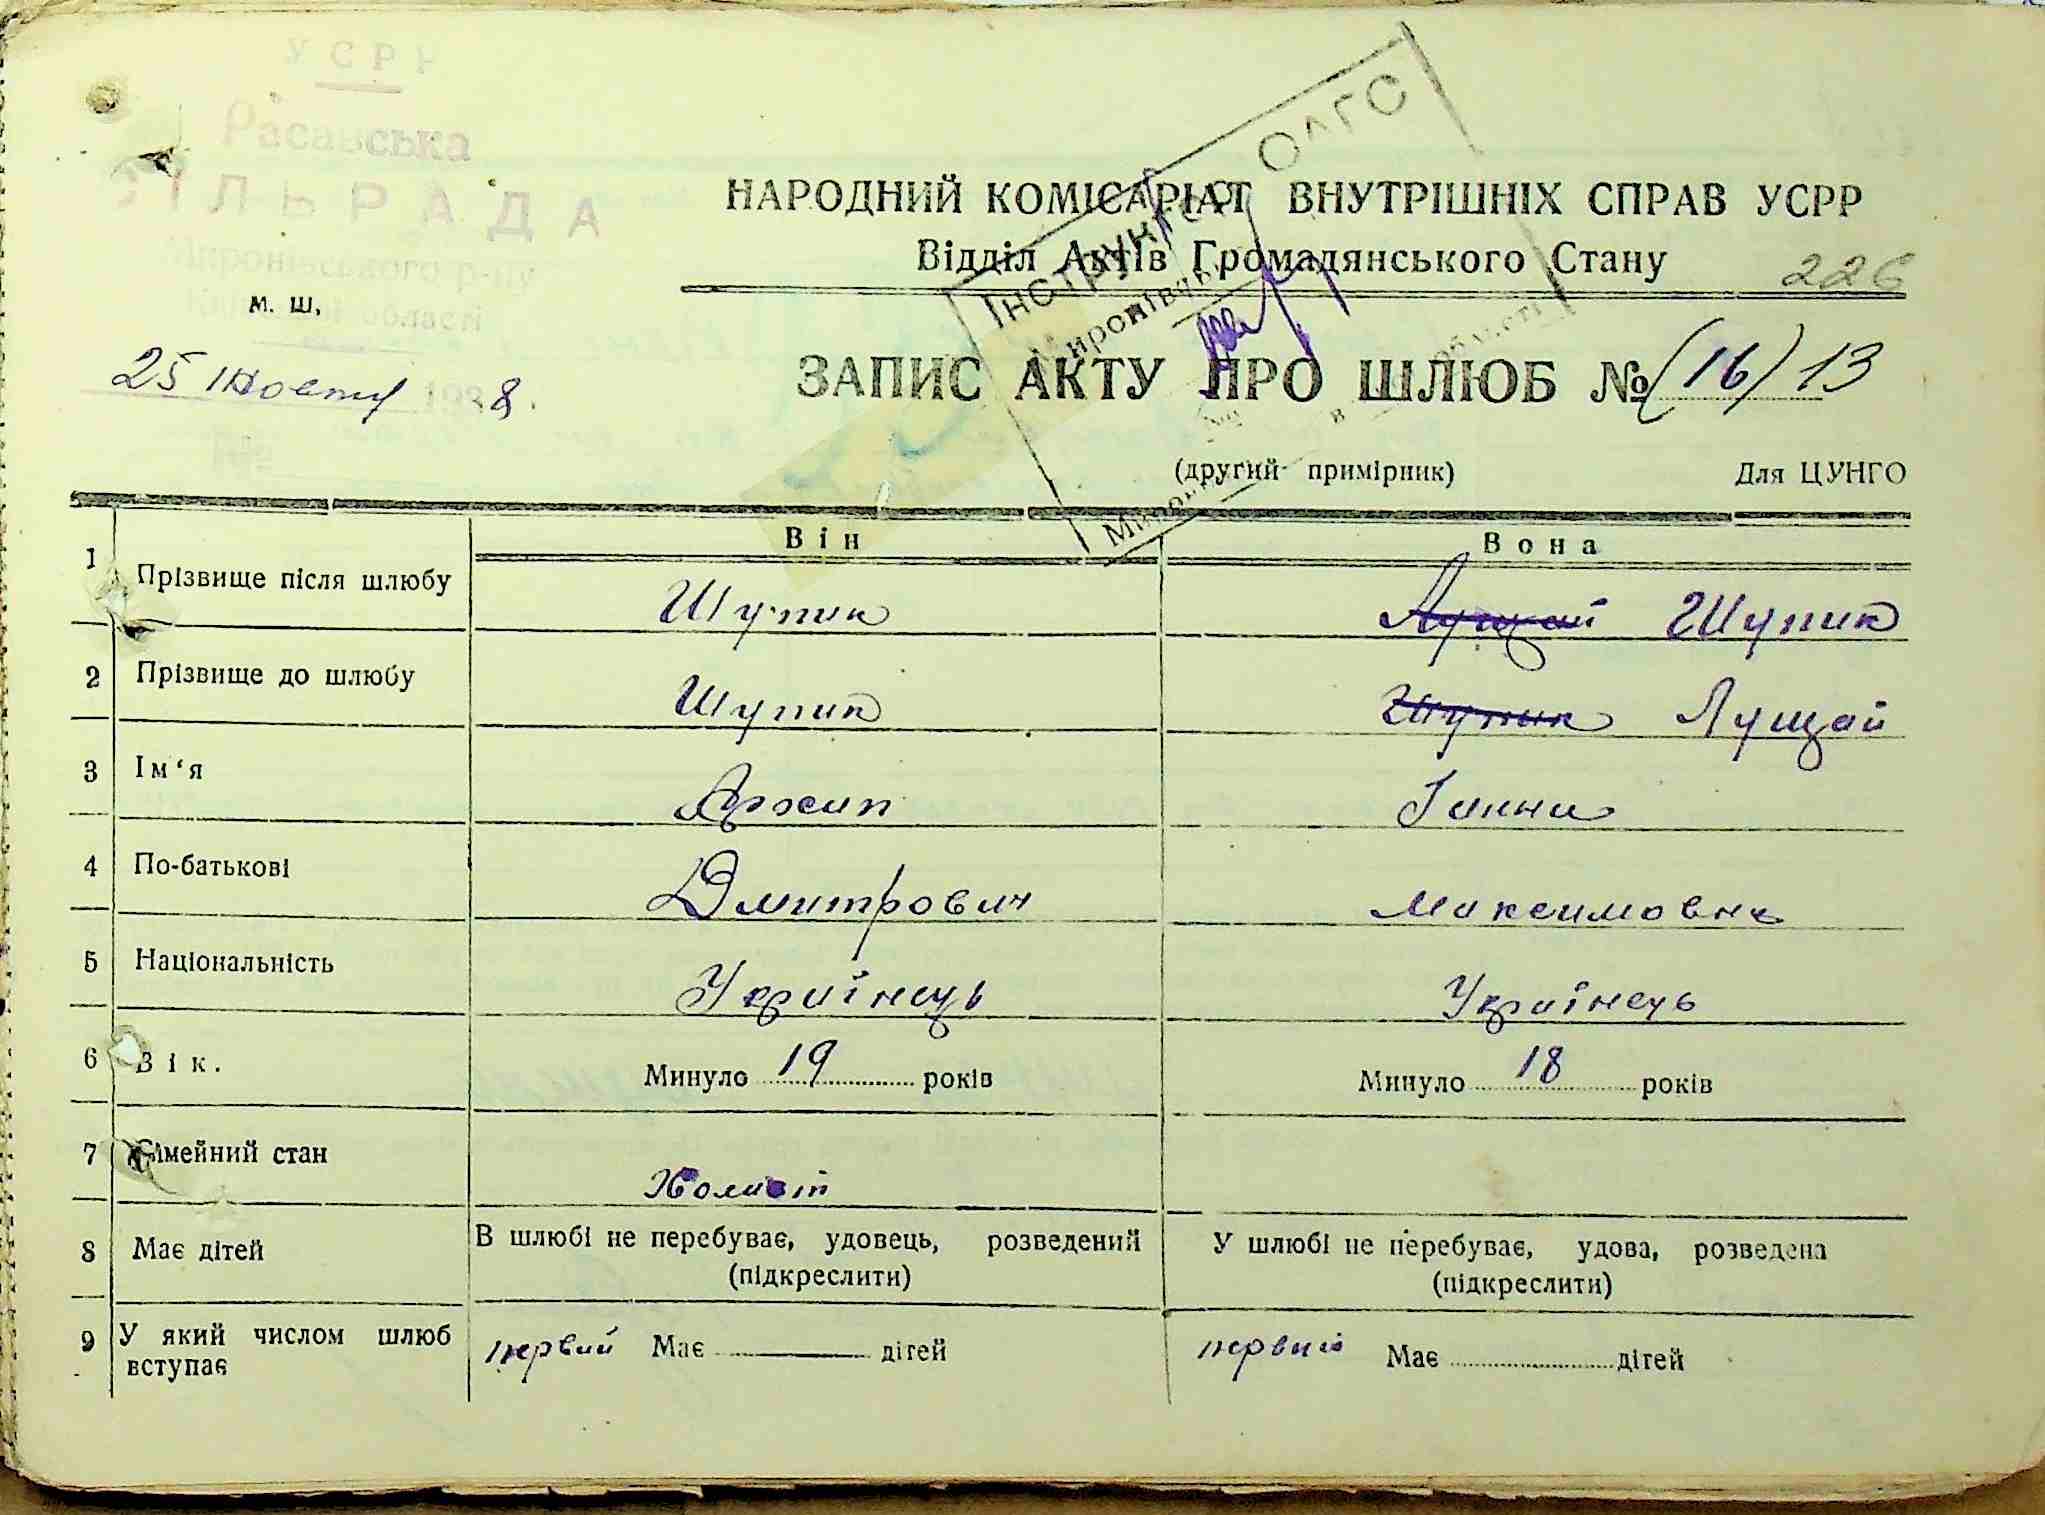 У С Р Р
Расавська
СІЛЬРАДА
Миронівського р-ну
Київської області
М. Ш.
25 Жовтня 1938.
№
Інструктор ОАГС
НАРОДНИЙ КОМІСАРІАТ ВНУТРІШНІХ СПРАВ УСРР
Відділ Актів Громадянського Стану
226
ЗАПИС АКТУ ПРО ШЛЮБ № (16) 13
(другий примірник)
Для ЦУНГО
Він
Вона
1 Прізвище після шлюбу Шупик Лущай Шупик
2 Прізвище до шлюбу Шупик Шупик Лущай
3 Ім‘я Архип Ганна
4 По-батькові Дмитрович Максимовна
5 Національність Українець Українець
6 Вік. Минуло 19 років Минуло 18 років
7 Сімейний стан Холост
8 Має дітей В шлюбі не перебуває, удовець, розведений У шлюбі не перебуває, удова, розведена
(підкреслити) (підкреслити)
9 У який числом шлюб вступає первий Має дітей первий Має дітей